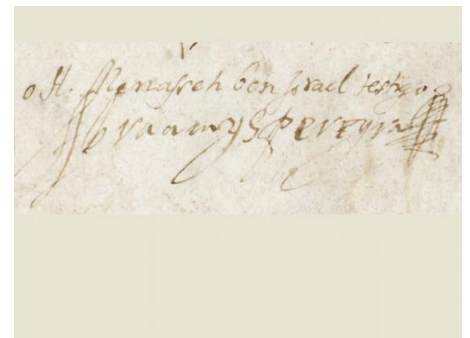 o H. Menasseh ben Israel testigo
Abraam ys pereyra